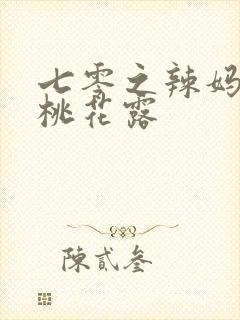 七零之辣妈
桃花露
陳貳叁